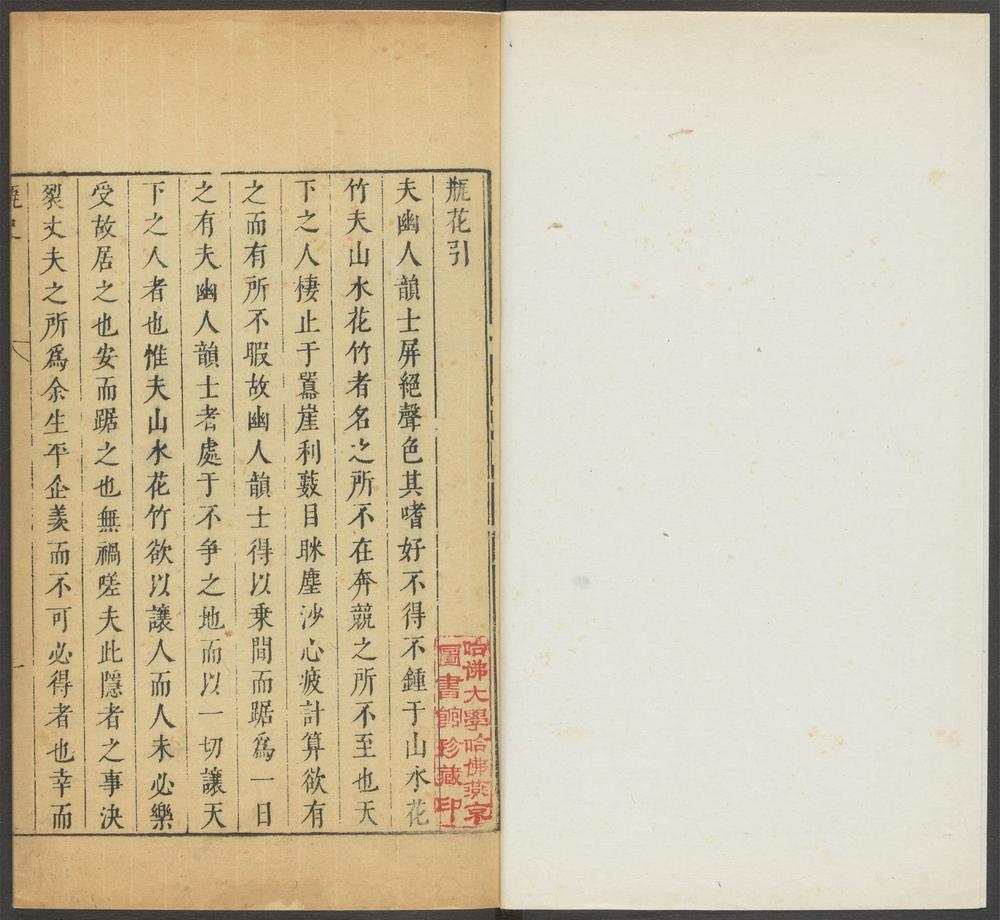 瓶花引
夫幽人韻士屏絕聲色其嗜好不得不鍾于山水花
竹夫山水花竹者名之所不在奔競之所不至也天
下之人棲止于囂崖利藪目眯塵沙心疲計算欲有
之而有所不暇故幽人韻士得以乗間而踞爲一日
之有夫幽人韻士者處于不爭之地而以一切讓天
下之人者也惟夫山水花竹欲以讓人而人未必樂
受故居之也安而踞之也無禍嗟夫此隱者之事決
裂丈夫之所爲余生平企羨而不可必得者也幸而
一
哈佛大學哈佛燕京
圖書館珍藏印